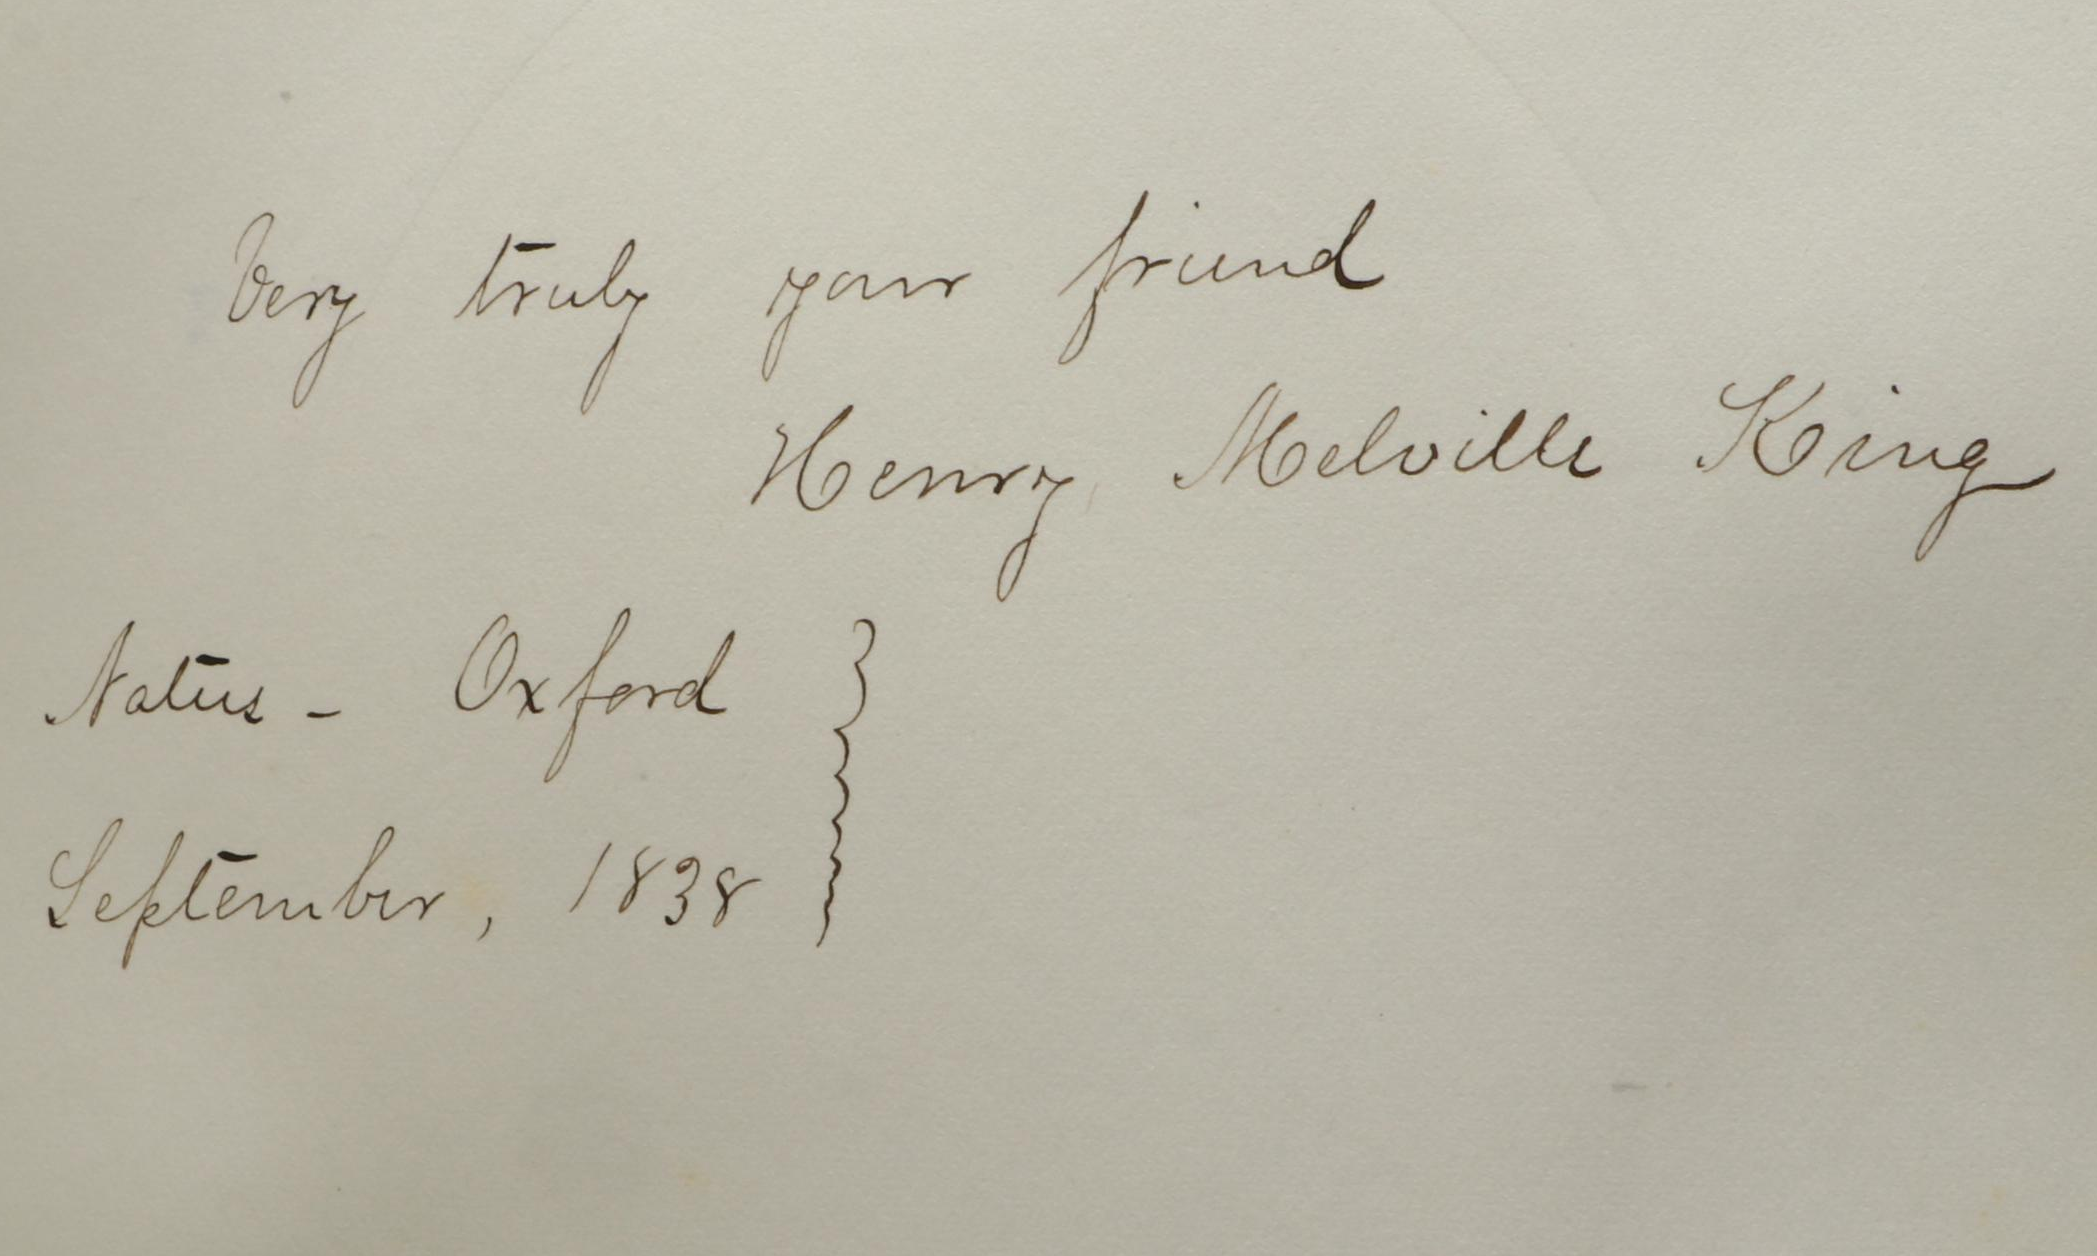 Very truly your friend
Henry Melville King
Natus - Oxford
September, 1838